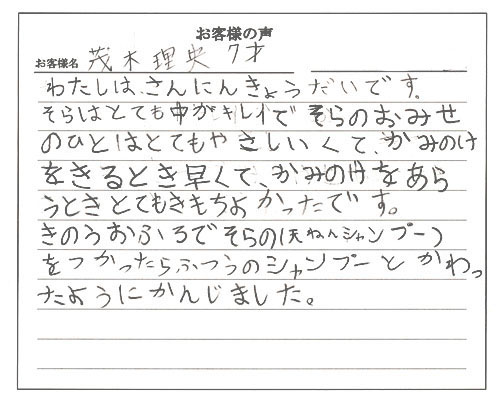 お客様の声
お客様名 茂木理央 7才
わたしは、さんにんきょうだいです。
そらはとても中がキレイで そらのおみせ
のひとはとてもやさしいくて、かみのけ
をきるとき早くて、かみのけをあら
うときとてもきもちよかったです。
きのうおふろでそらの(天ねんシャンプー)
をつかったらふつうのシャンプーとかわっ
たようにかんじました。